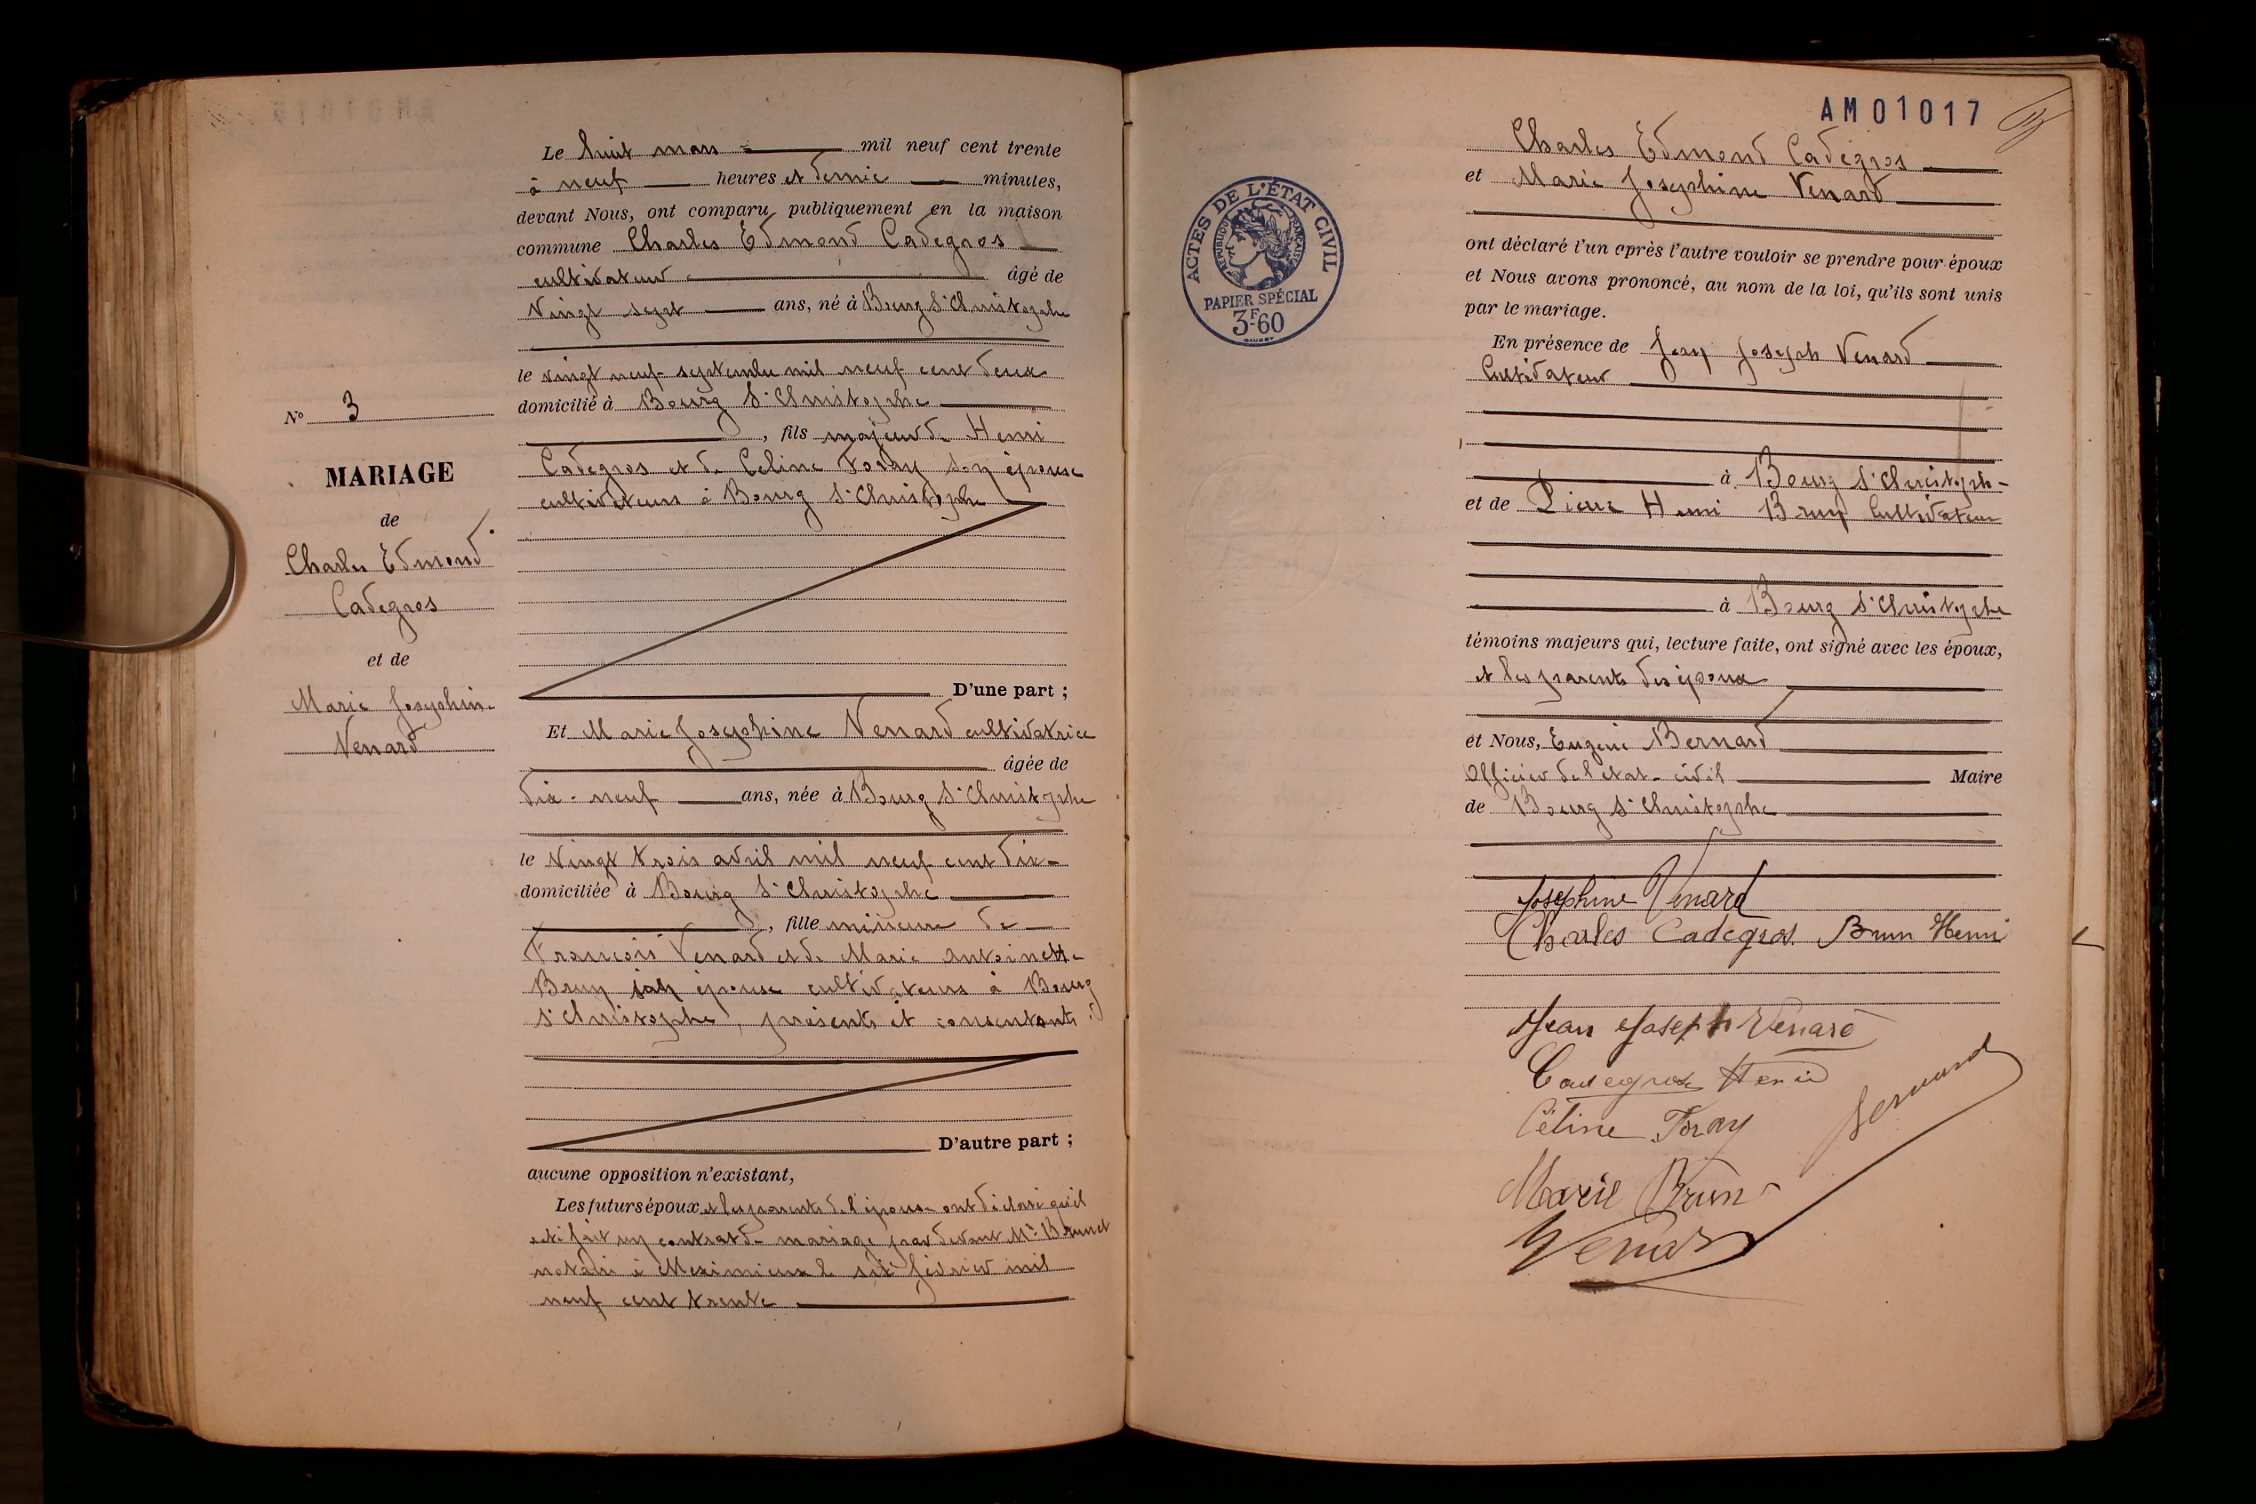 Le huit mars mil neuf cent trente
à neuf heures et demie minutes,
devant Nous, ont comparu publiquement en la maison
commune Charles Edmond Cadegros
cultivateur âgé de
vingt sept ans, né à Bourg St Christophe
le vingt neuf septembre mil neuf cent deux
domicilié à Bourg St Christophe
, fils majeur de Henri
Cadegros et de Celine Foray son épouse
cultivateurs à Bourg St Christophe
D'une part ;
No 3
MARIAGE
de
Charles Edmond
Cadegros
et de
Marie Josephine
Venard
Et Marie Josephine Venard cultivatrice
âgée de
dix-neuf ans, née à Bourg St Christophe
le vingt trois avril mil neuf cent dix
domiciliée à Bourg St Christophe
, fille mineure de
François Venard et de Marie Antoinette
Brun son épouse cultivateurs à Bourg
St Christophe, présents et consentants
D'autre part ;
aucune opposition n'existant,
Les futurs époux et les parents de l'épouse ont déclaré qu'il
a été fait un contrat de mariage par devant Me Brunet
notaire à Meximieux le six février mil
neuf cent trente
AM01017
Charles Edmond Cadegros
et Marie Josephine Venard
ont déclaré l'un après l'autre vouloir se prendre pour époux
et Nous avons prononcé, au nom de la loi, qu'ils sont unis
par le mariage.
ACTES DE L'ÉTAT CIVIL
REPUBLIQUE FRANÇAISE
PAPIER SPÉCIAL
3F60
En présence de Jean Joseph Venard
Cultivateur
à Bourg St Christophe
et de Pierre Henri Brun Cultivateur
à Bourg St Christophe
témoins majeurs qui, lecture faite, ont signé avec les époux,
et les parents des époux
et Nous, Eugène Bernard
Officier de l'etat-civil Maire
de Bourg St Christophe
Josephine Venard
Charles Cadegros Brun Henri
Jean Joseph Venard
Cadegros Henri
Bernard
Céline Foray
Marie Brun
Venard